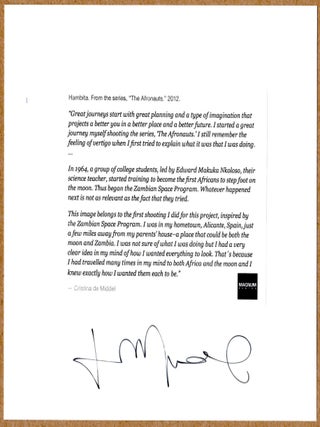 Hambita. From the series, "The Afronauts." 2012.
"Great journeys start with great planning and a type of imagination that
projects a better you in a better place and a better future. I started a great
journey myself shooting the series, 'The Afronauts.' I still remember the
feeling of vertigo when I first tried to explain what it was that I was doing.
...
In 1964, a group of college students, led by Edward Makuka Nkoloso, their
science teacher, started training to become the first Africans to step foot on
the moon. Thus began the Zambian Space Program. Whatever happened
next is not as relevant as the fact that they tried.
This image belongs to the first shooting I did for this project, inspired by
the Zambian Space Program. I was in my hometown, Alicante, Spain, just
a few miles away from my parents' house–a place that could be both the
moon and Zambia. I was not sure of what I was doing but I had a very
clear idea in my mind of how I wanted everything to look. That's because
I had travelled many times in my mind to both Africa and the moon and I
knew exactly how I wanted them each to be."
— Cristina de Middel
MAGNUM